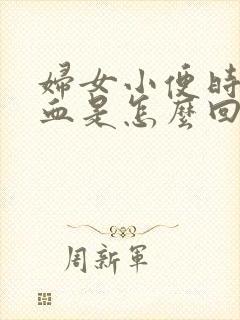 婦女小便時
血是怎麼回
周新軍